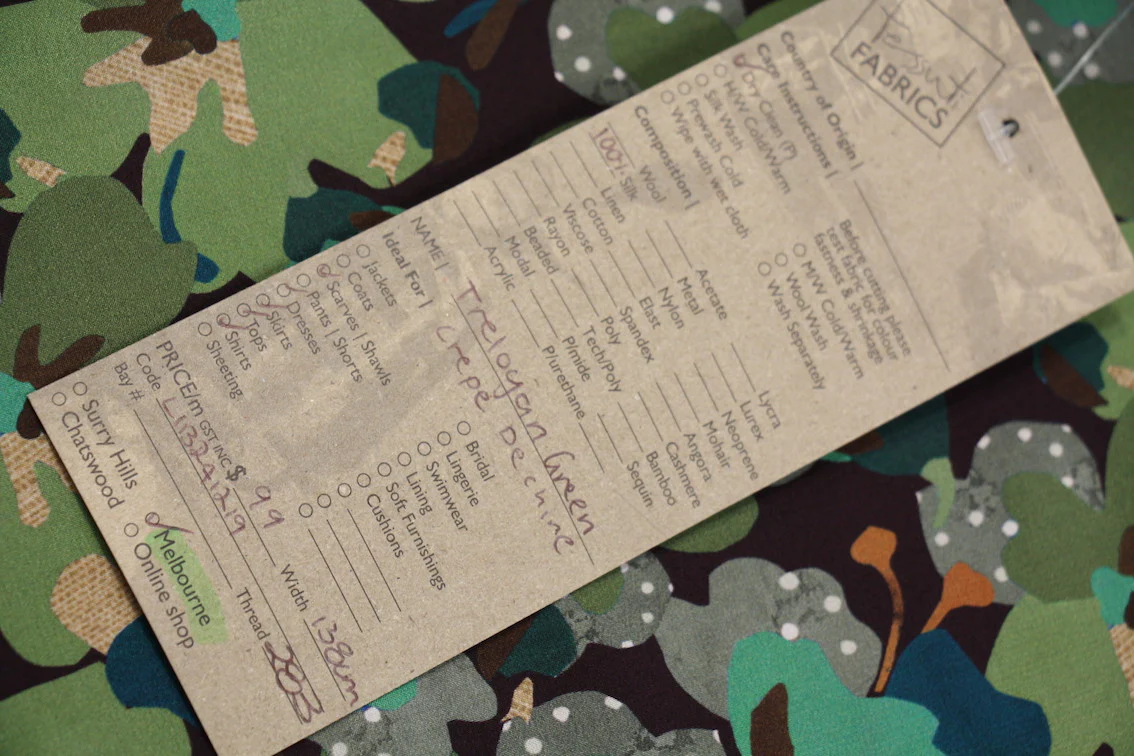 Tessuti
FABRICS
Country of Origin |
Care Instructions |
Dry Clean (P)
H/W Cold/Warm
Silk Wash
Prewash Cold
Wipe with wet cloth
Before cutting please
test fabric for colour
fastness & shrinkage
M/W Cold/Warm
Wool Wash
Wash Separately
Composition |
Wool
100% Silk
Linen
Cotton
Viscose
Rayon
Beaded
Modal
Acrylic
Acetate
Metal
Nylon
Elast
Spandex
Poly
Tech/Poly
P/mide
P/urethane
Lycra
Lurex
Neoprene
Mohair
Angora
Cashmere
Bamboo
Sequin
NAME | Treloyan Green
Crepe De chine
Ideal For |
Jackets
Coats
Scarves | Shawls
Pants | Shorts
Dresses
Skirts
Tops
Shirts
Sheeting
Bridal
Lingerie
Swimwear
Lining
Soft Furnishings
Cushions
PRICE/m GST INC $ 99 Width 138cm
Code L132A1219 Thread
Bay #
Surry Hills
Chatswood
Melbourne
Online shop